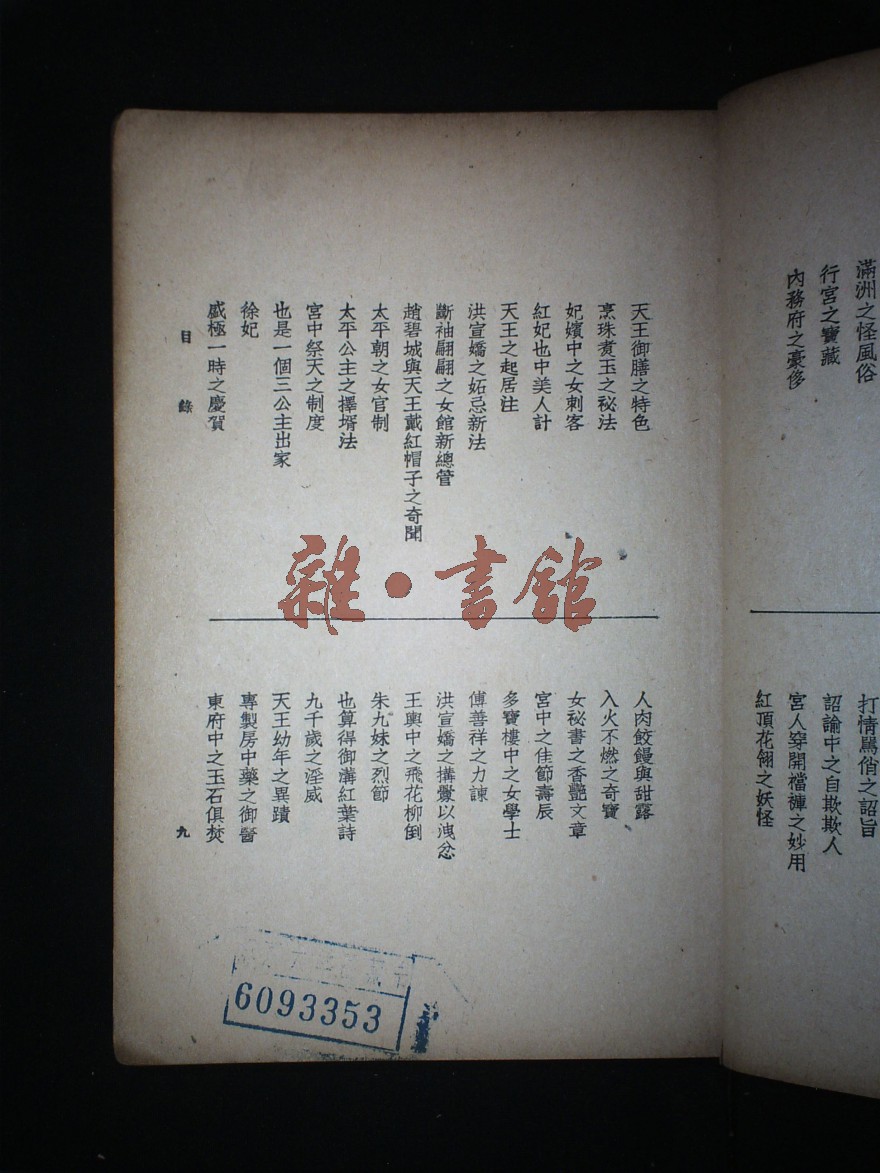 滿洲之怪風俗
行宮之寶藏
內務府之豪侈
打情罵俏之詔旨
詔諭中之自欺欺人
宮人穿開襠褲之妙用
紅頂花翎之妖怪
天王御膳之特色
烹珠煮玉之秘法
妃嬪中之女刺客
紅妃也中美人計
天王之起居注
洪宣嬌之妬忌新法
斷袖翩翩之女館新總管
趙碧城與天王戴紅帽子之奇聞
太平朝之女官制
太平公主之擇壻法
宮中祭天之制度
也是一個三公主出家
徐妃
盛極一時之慶賀
人肉餃饅與甜露
入火不燃之奇寶
女秘書之香艷文章
宮中之佳節壽辰
多寶樓中之女學士
傅善祥之力諫
洪宣嬌之搆釁以洩忿
王輿中之飛花柳倒
朱九妹之烈節
也算得御溝紅葉詩
九千歲之淫威
天王幼年之異蹟
專製房中藥之御醫
東府中之玉石俱焚
目錄
九
雜·書館
6093353